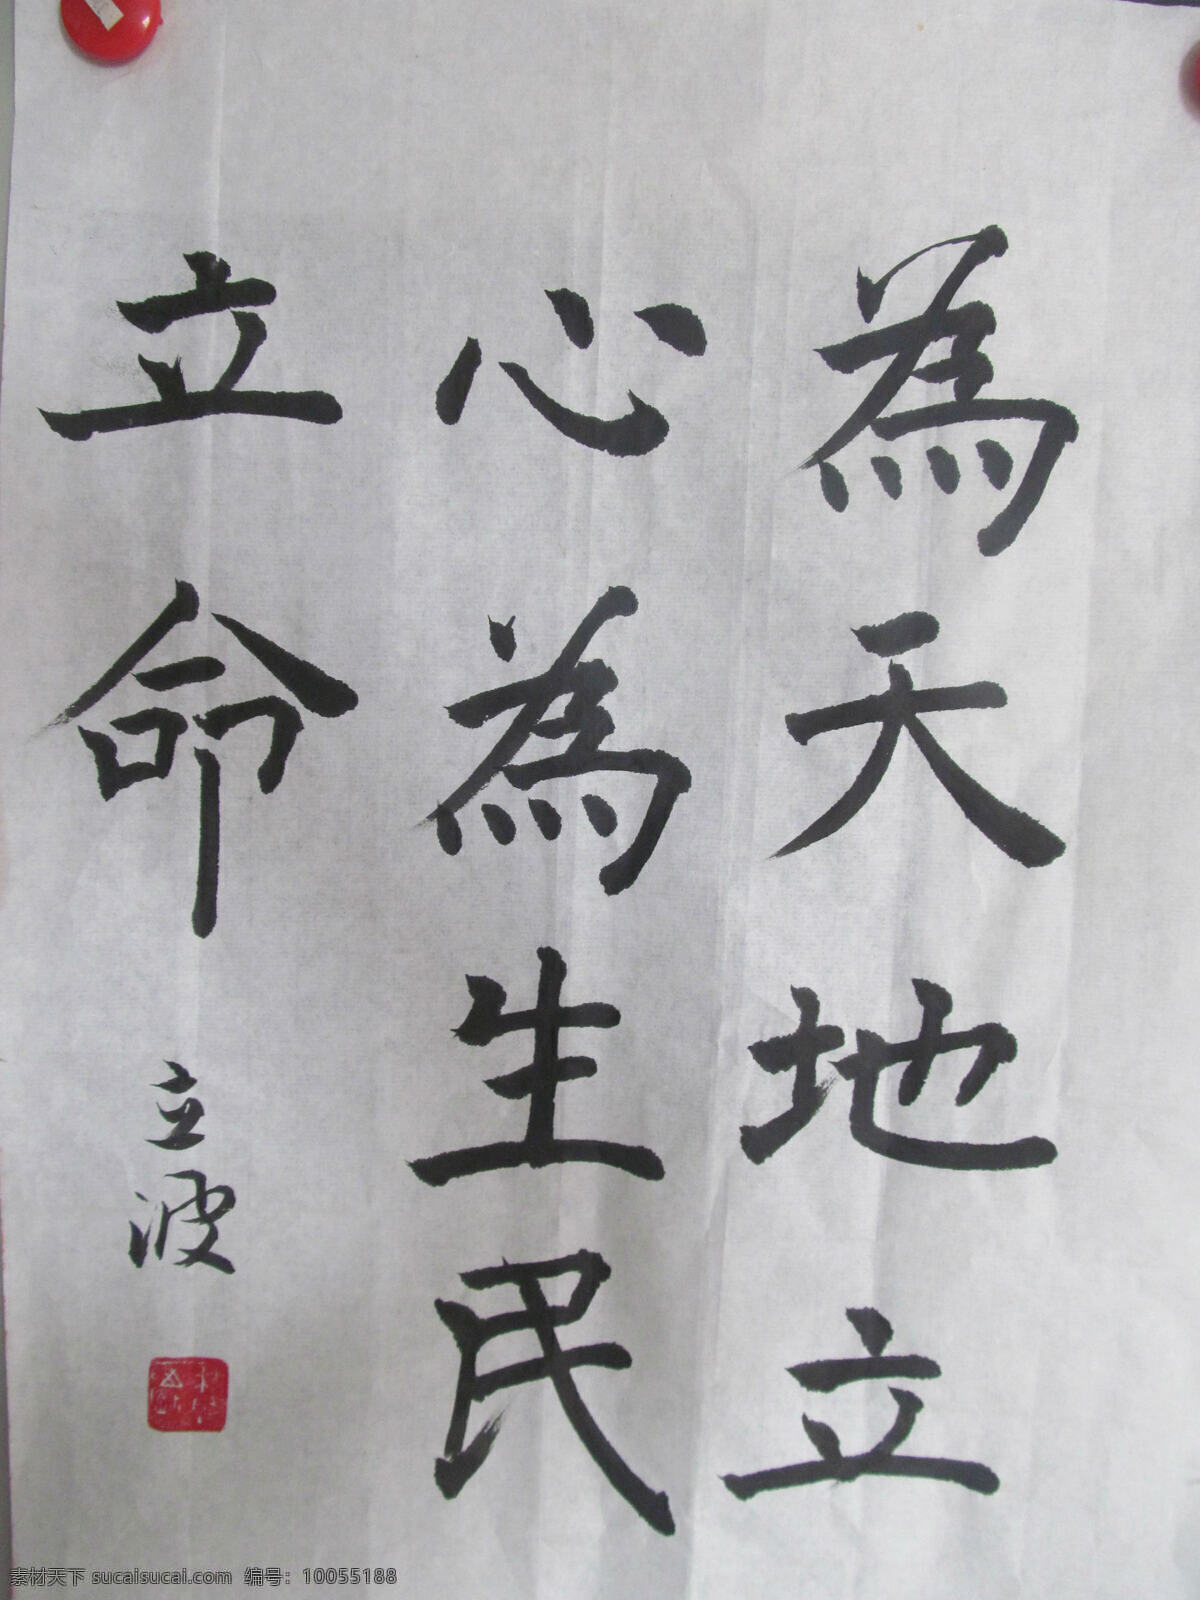 為天地立
心為生民
立命
立波
素材天下 sucaisucai.com 编号：10055188